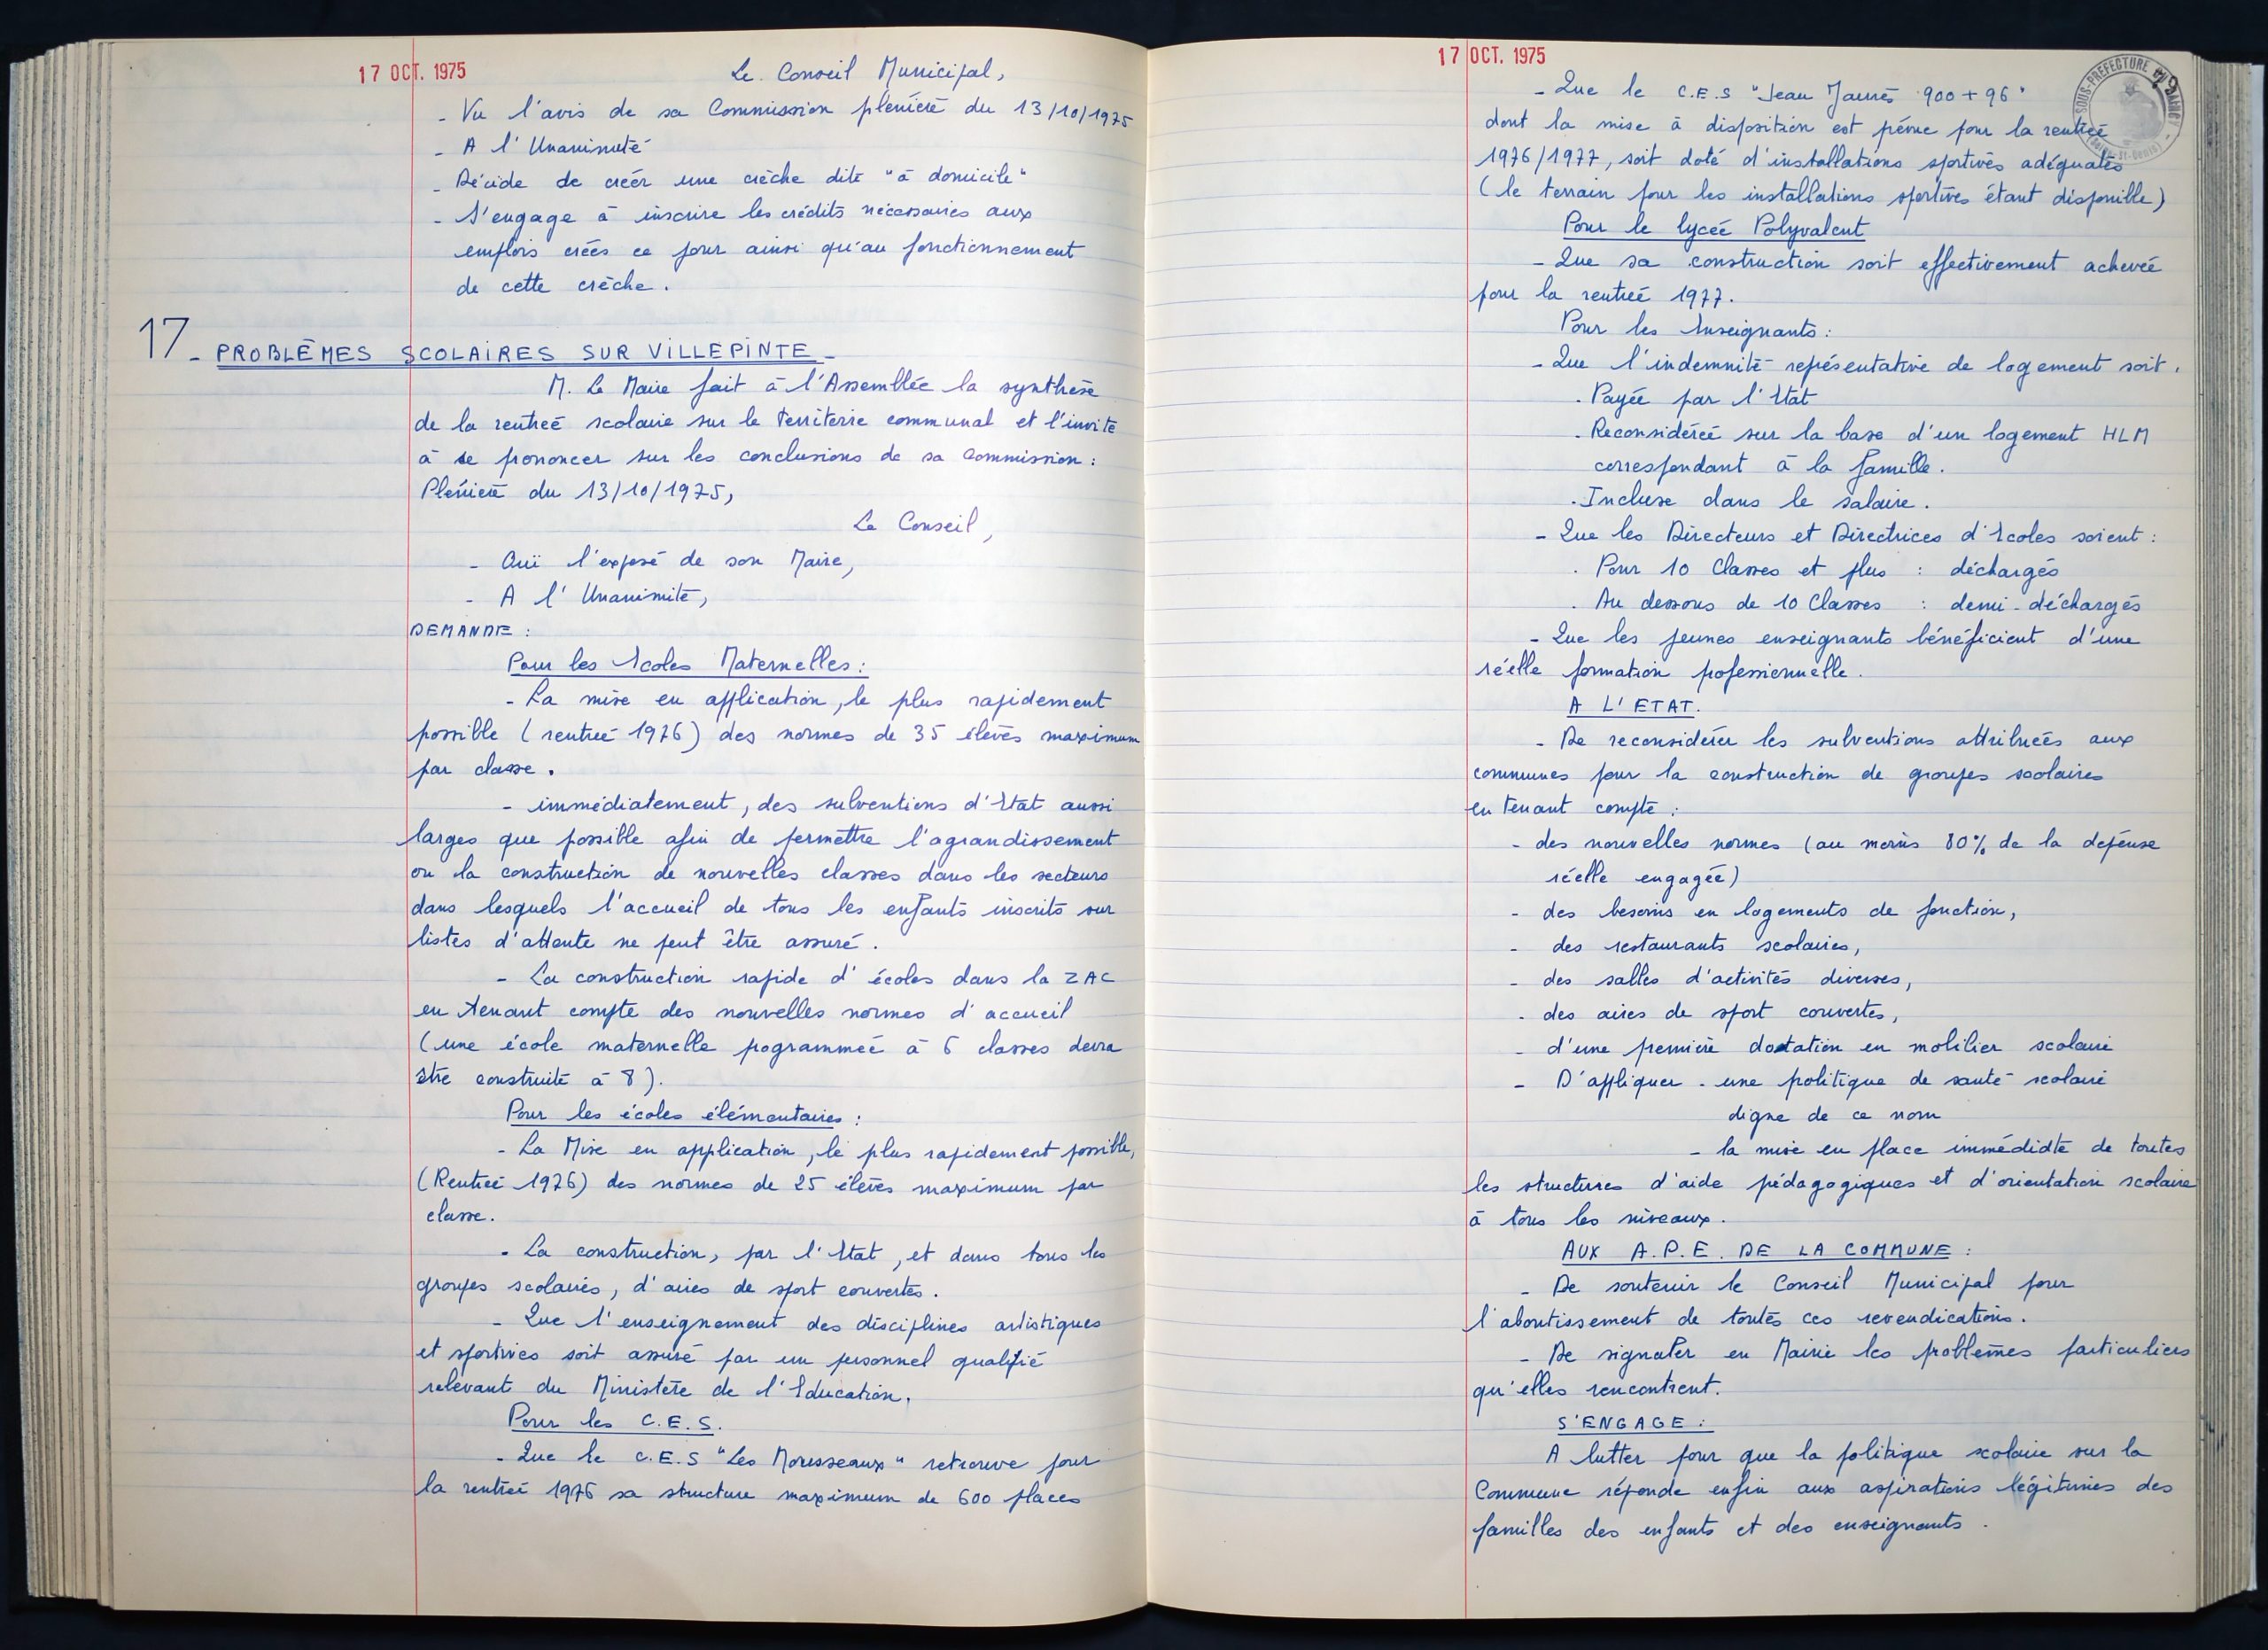 17 OCT. 1975
Le Conseil Municipal,
- Vu l'avis de sa Commission plénière du 13/10/1975
- A l'Unanimité
- Décide de créer une crèche dite "à domicile"
- S'engage à inscrire les crédits nécessaires aux
emplois créés ce jour ainsi qu'au fonctionnement
de cette crèche.
17 - PROBLÈMES SCOLAIRES SUR VILLEPINTE -
M. Le Maire fait à l'Assemblée la synthèse
de la rentrée scolaire sur le territoire communal et l'invite
à se prononcer sur les conclusions de sa commission :
Plénière du 13/10/1975,
Le Conseil,
- Ouï l'exposé de son Maire,
- A l'Unanimité,
DEMANDE :
Pour les Ecoles Maternelles :
- La mise en application, le plus rapidement
possible (rentrée 1976) des normes de 35 élèves maximum
par classe.
- immédiatement, des subventions d'Etat aussi
larges que possible afin de permettre l'agrandissement
ou la construction de nouvelles classes dans les secteurs
dans lesquels l'accueil de tous les enfants inscrits sur
listes d'attente ne peut être assuré.
- La construction rapide d'écoles dans la ZAC
en tenant compte des nouvelles normes d'accueil
(une école maternelle pogrammée à 6 classes devra
être construite à 8).
Pour les écoles élémentaires :
- La Mise en application, le plus rapidement possible,
(Rentrée 1976) des normes de 25 élèves maximum par
classe.
- La construction, par l'Etat, et dans tous les
groupes scolaires, d'aires de sport couvertes.
- Que l'enseignement des disciplines artistiques
et sportives soit assuré par un personnel qualifié
relevant du Ministère de l'Education.
Pour les C.E.S.
- Que le C.E.S "Les Mousseaux" retrouve pour
la rentrée 1976 sa structure maximum de 600 places
17 OCT. 1975
SOUS-PREFECTURE DU RAINCY
(Seine-St-Denis)
- Que le C.E.S "Jean Jaurès 900 + 96"
dont la mise à disposition est prévue pour la rentrée
1976/1977, soit doté d'installations sportives adéquates
(le terrain pour les installations sportives étant disponible)
Pour le lycée Polyvalent
- Que sa construction soit effectivement achevée
pour la rentrée 1977.
Pour les Enseignants :
- Que l'indemnité représentative de logement soit .
. Payée par l'Etat
. Reconsidérée sur la base d'un logement HLM
correspondant à la famille.
. Incluse dans le salaire.
- Que les Directeurs et Directrices d'Ecoles soient :
. Pour 10 Classes et plus : déchargés
. Au dessous de 10 Classes : demi-déchargés
- Que les jeunes enseignants bénéficient d'une
réelle formation pofessionnelle.
A L'ETAT.
- De reconsidérer les subventions attribuées aux
communes pour la construction de groupes scolaires
en tenant compte :
- des nouvelles normes (au moins 80% de la dépense
réelle engagée)
- des besoins en logements de fonction,
- des restaurants scolaires,
- des salles d'activités diverses,
- des aires de sport couvertes,
- d'une première dotation en mobilier scolaire
- D'appliquer - une politique de santé scolaire
digne de ce nom
- la mise en place immédidte de toutes
les structures d'aide pédagogiques et d'orientation scolaire
à tous les niveaux.
AUX A.P.E. DE LA COMMUNE :
- De soutenir le Conseil Municipal pour
l'aboutissement de toutes ces revendications.
- De signaler en Mairie les problèmes particuliers
qu'elles rencontrent.
S'ENGAGE :
A lutter pour que la politique scolaire sur la
Commune réponde enfin aux aspirations légitimes des
familles des enfants et des enseignants.